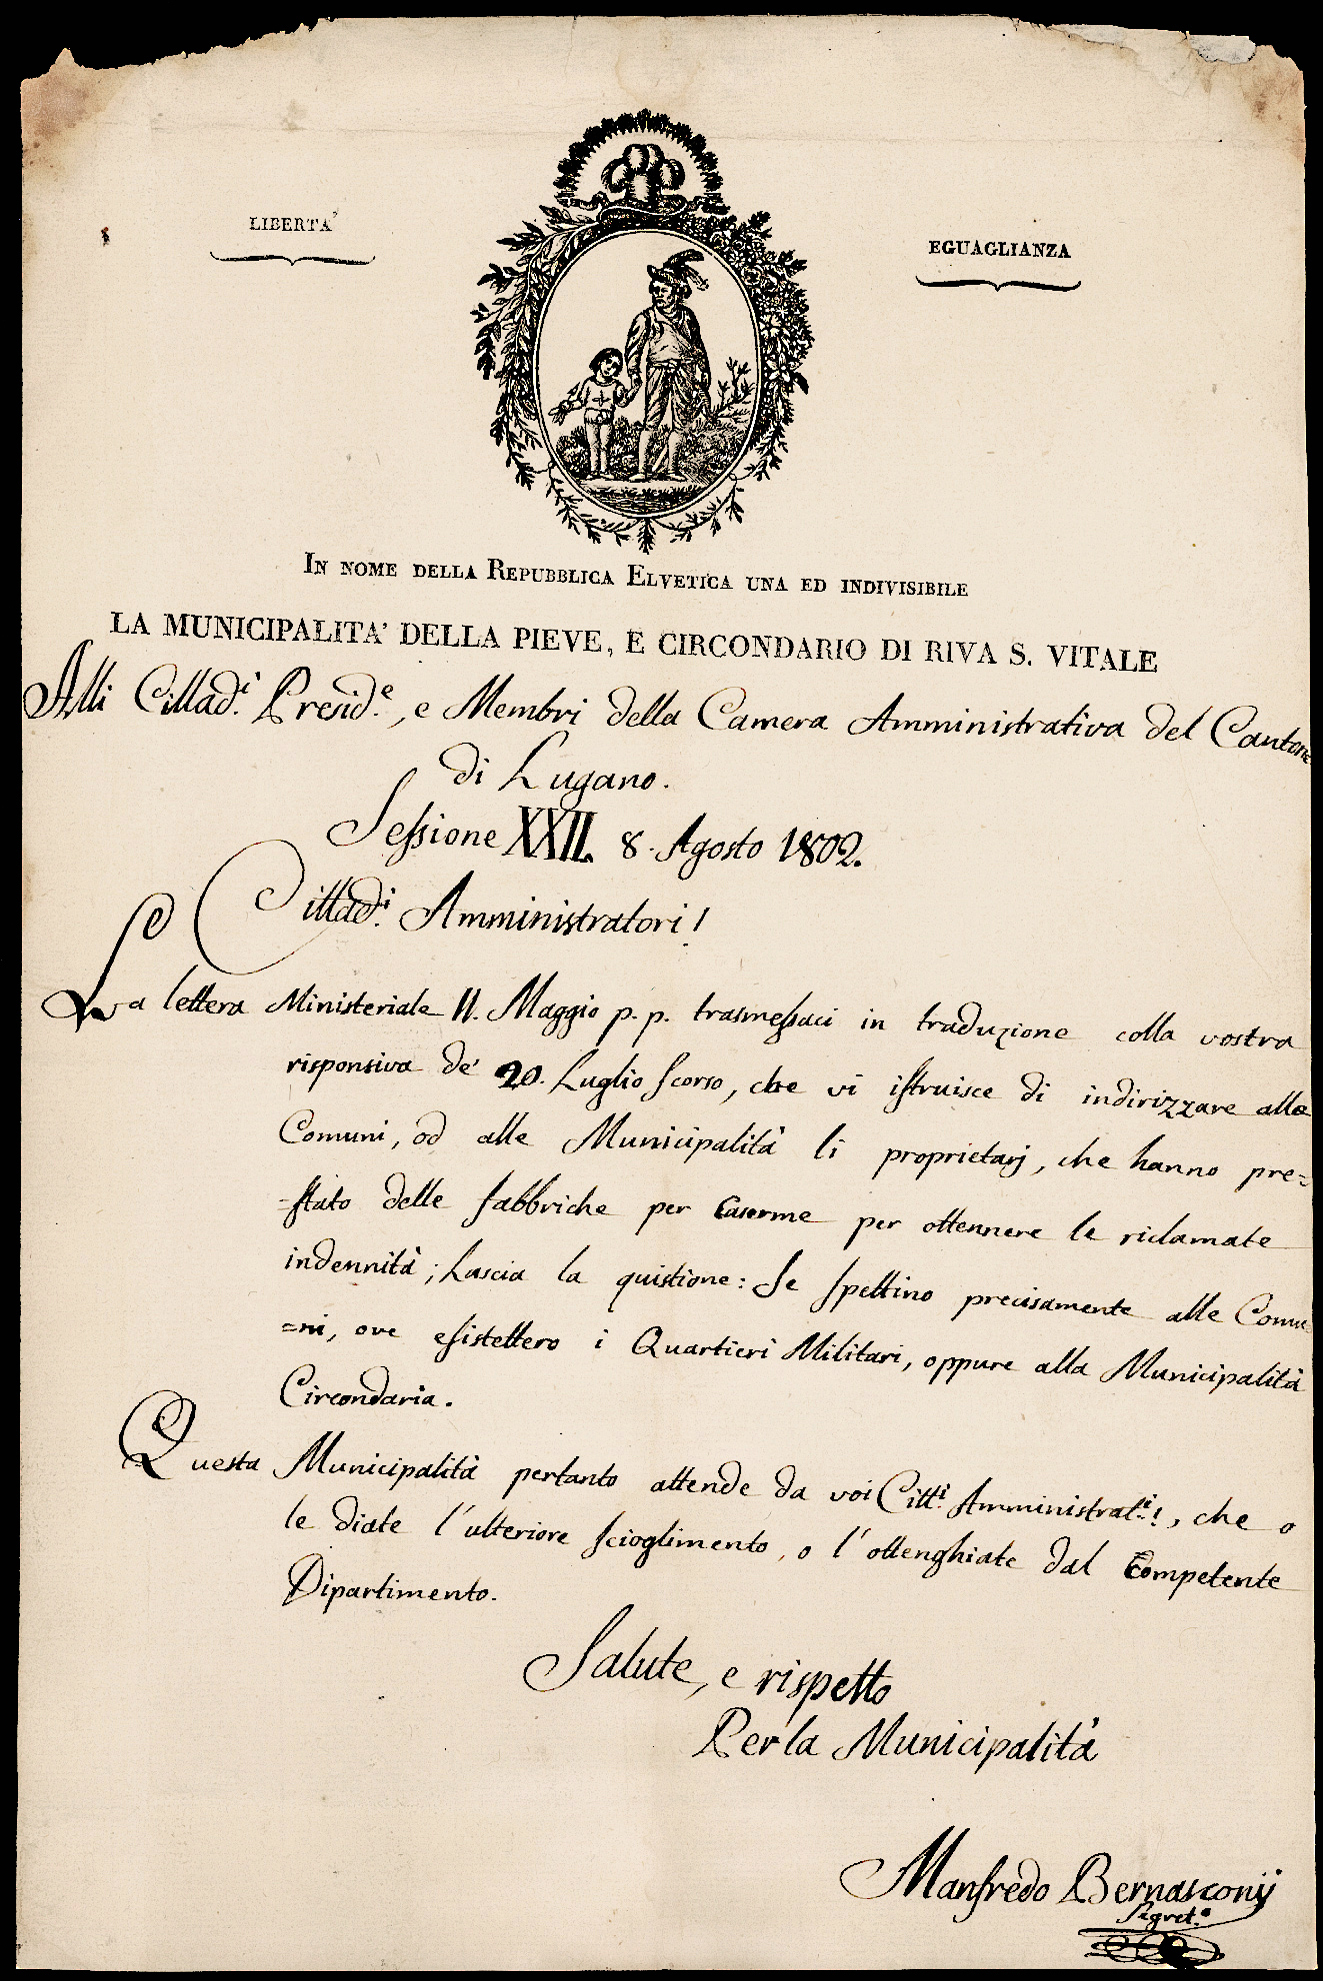 LIBERTA'
EGUAGLIANZA
IN NOME DELLA REPUBBLICA ELVETICA UNA ED INDIVISIBILE
LA MUNICIPALITA' DELLA PIEVE, E CIRCONDARIO DI RIVA S. VITALE
Alli Cittad.i Presid.e, e Membri della Camera Amministrativa del Cantone
di Lugano.
Sessione XXII. 8. Agosto 1802.
Cittad.i Amministratori!
La lettera Ministeriale 11. Maggio p. p. trasmessaci in traduzione colla vostra
risponsiva de' 20. Luglio scorso, che vi istruisce di indirizzare alle
Comuni, od alle Municipalità li proprietarj, che hanno pre=
=stato delle fabbriche per Caserme per ottennere le riclamate
indennità; Lascia la quistione: Se spettino precisamente alle Comu=
=ni, ove esistettero i Quartieri Militari, oppure alla Municipalità
Circondaria.
Questa Municipalità pertanto attende da voi Citt.i Amministrat.i!, che o
le diate l'ulteriore scioglimento, o l'ottenghiate dal Competente
Dipartimento.
Salute, e rispetto
Per la Municipalità
Manfredo Bernasconij
Segret.o